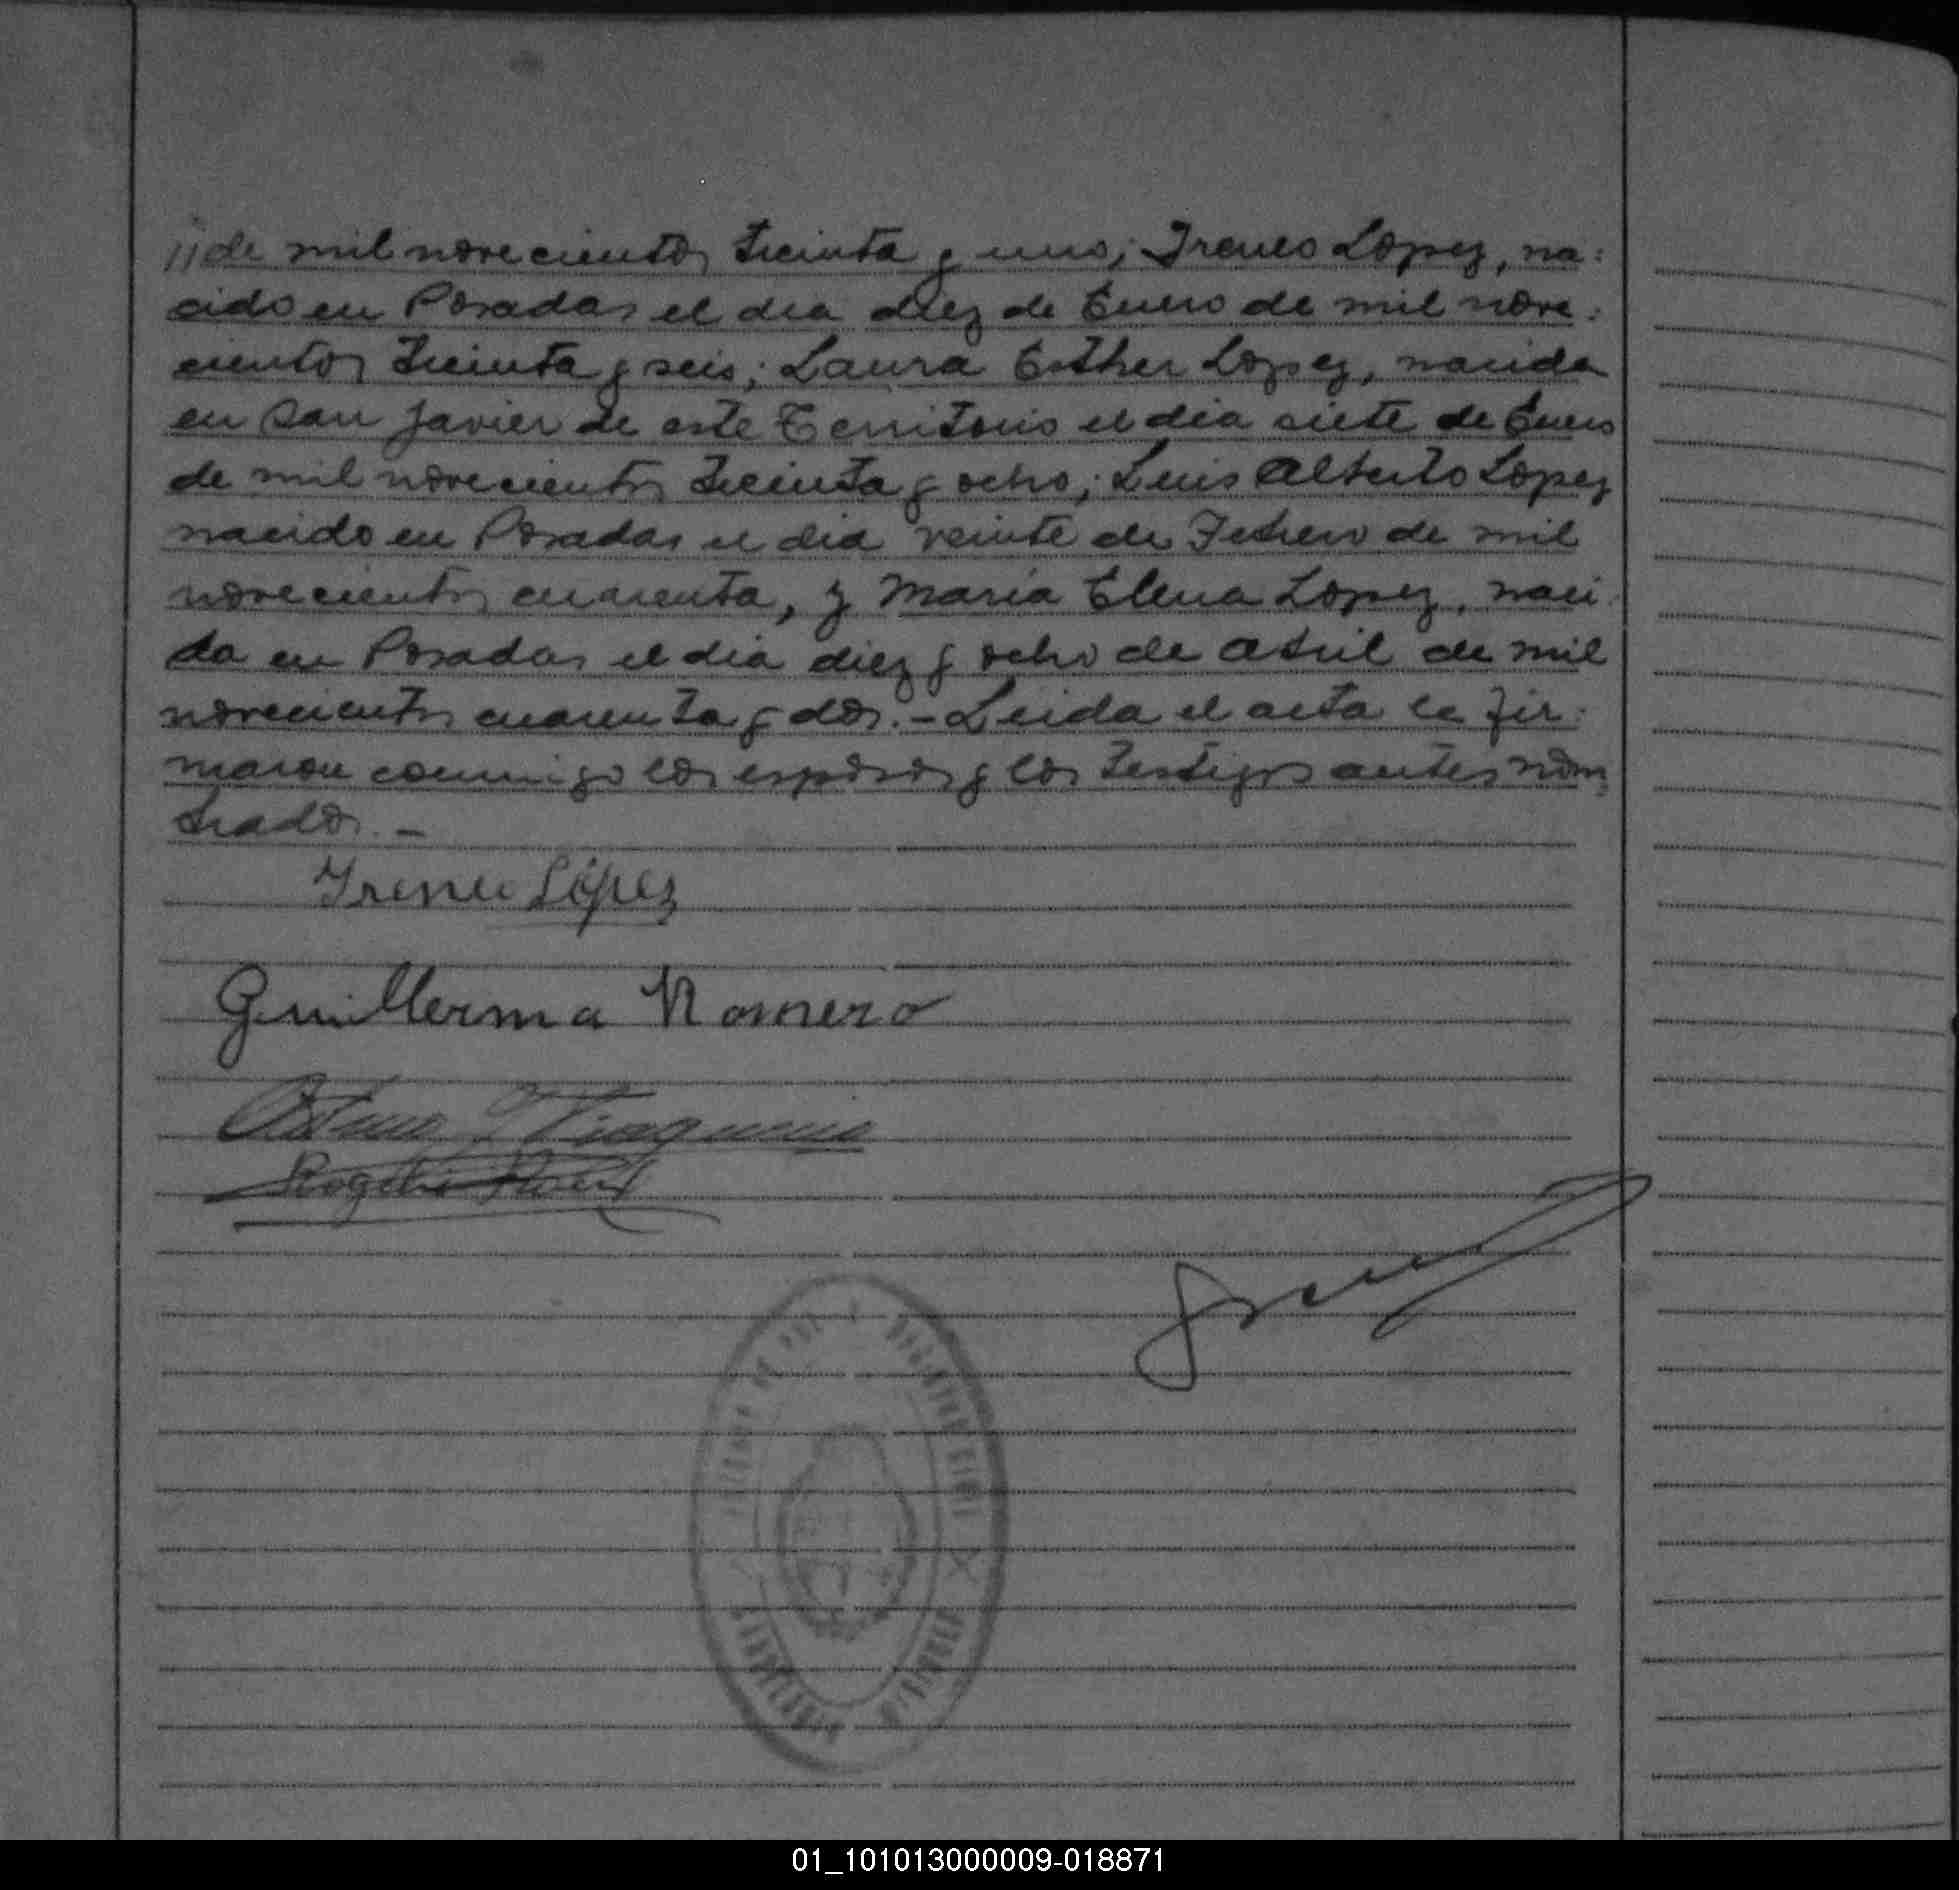 //de mil novecientos treinta y uno; Ireneo Lopez, na:
cido en Posadas el dia diez de Enero de mil nove:
cientos treinta y seis; Laura Esther Lopez, nacida
en San Javier de este Territorio el dia siete de Enero
de mil novecientos treinta y ocho; Luis Alberto Lopez
nacido en Posadas el dia veinte de Febrero de mil
novecientos cuarenta, y Maria Elena Lopez, naci:
da en Posadas el dia diez y ocho de Abril de mil
novecientos cuarenta y dos.- Leida el acta la fir:
maron conmigo los esposos y los testigos antes nom:
brados.-
Ireneo López
Guillerma Romero
01_101013000009-018871